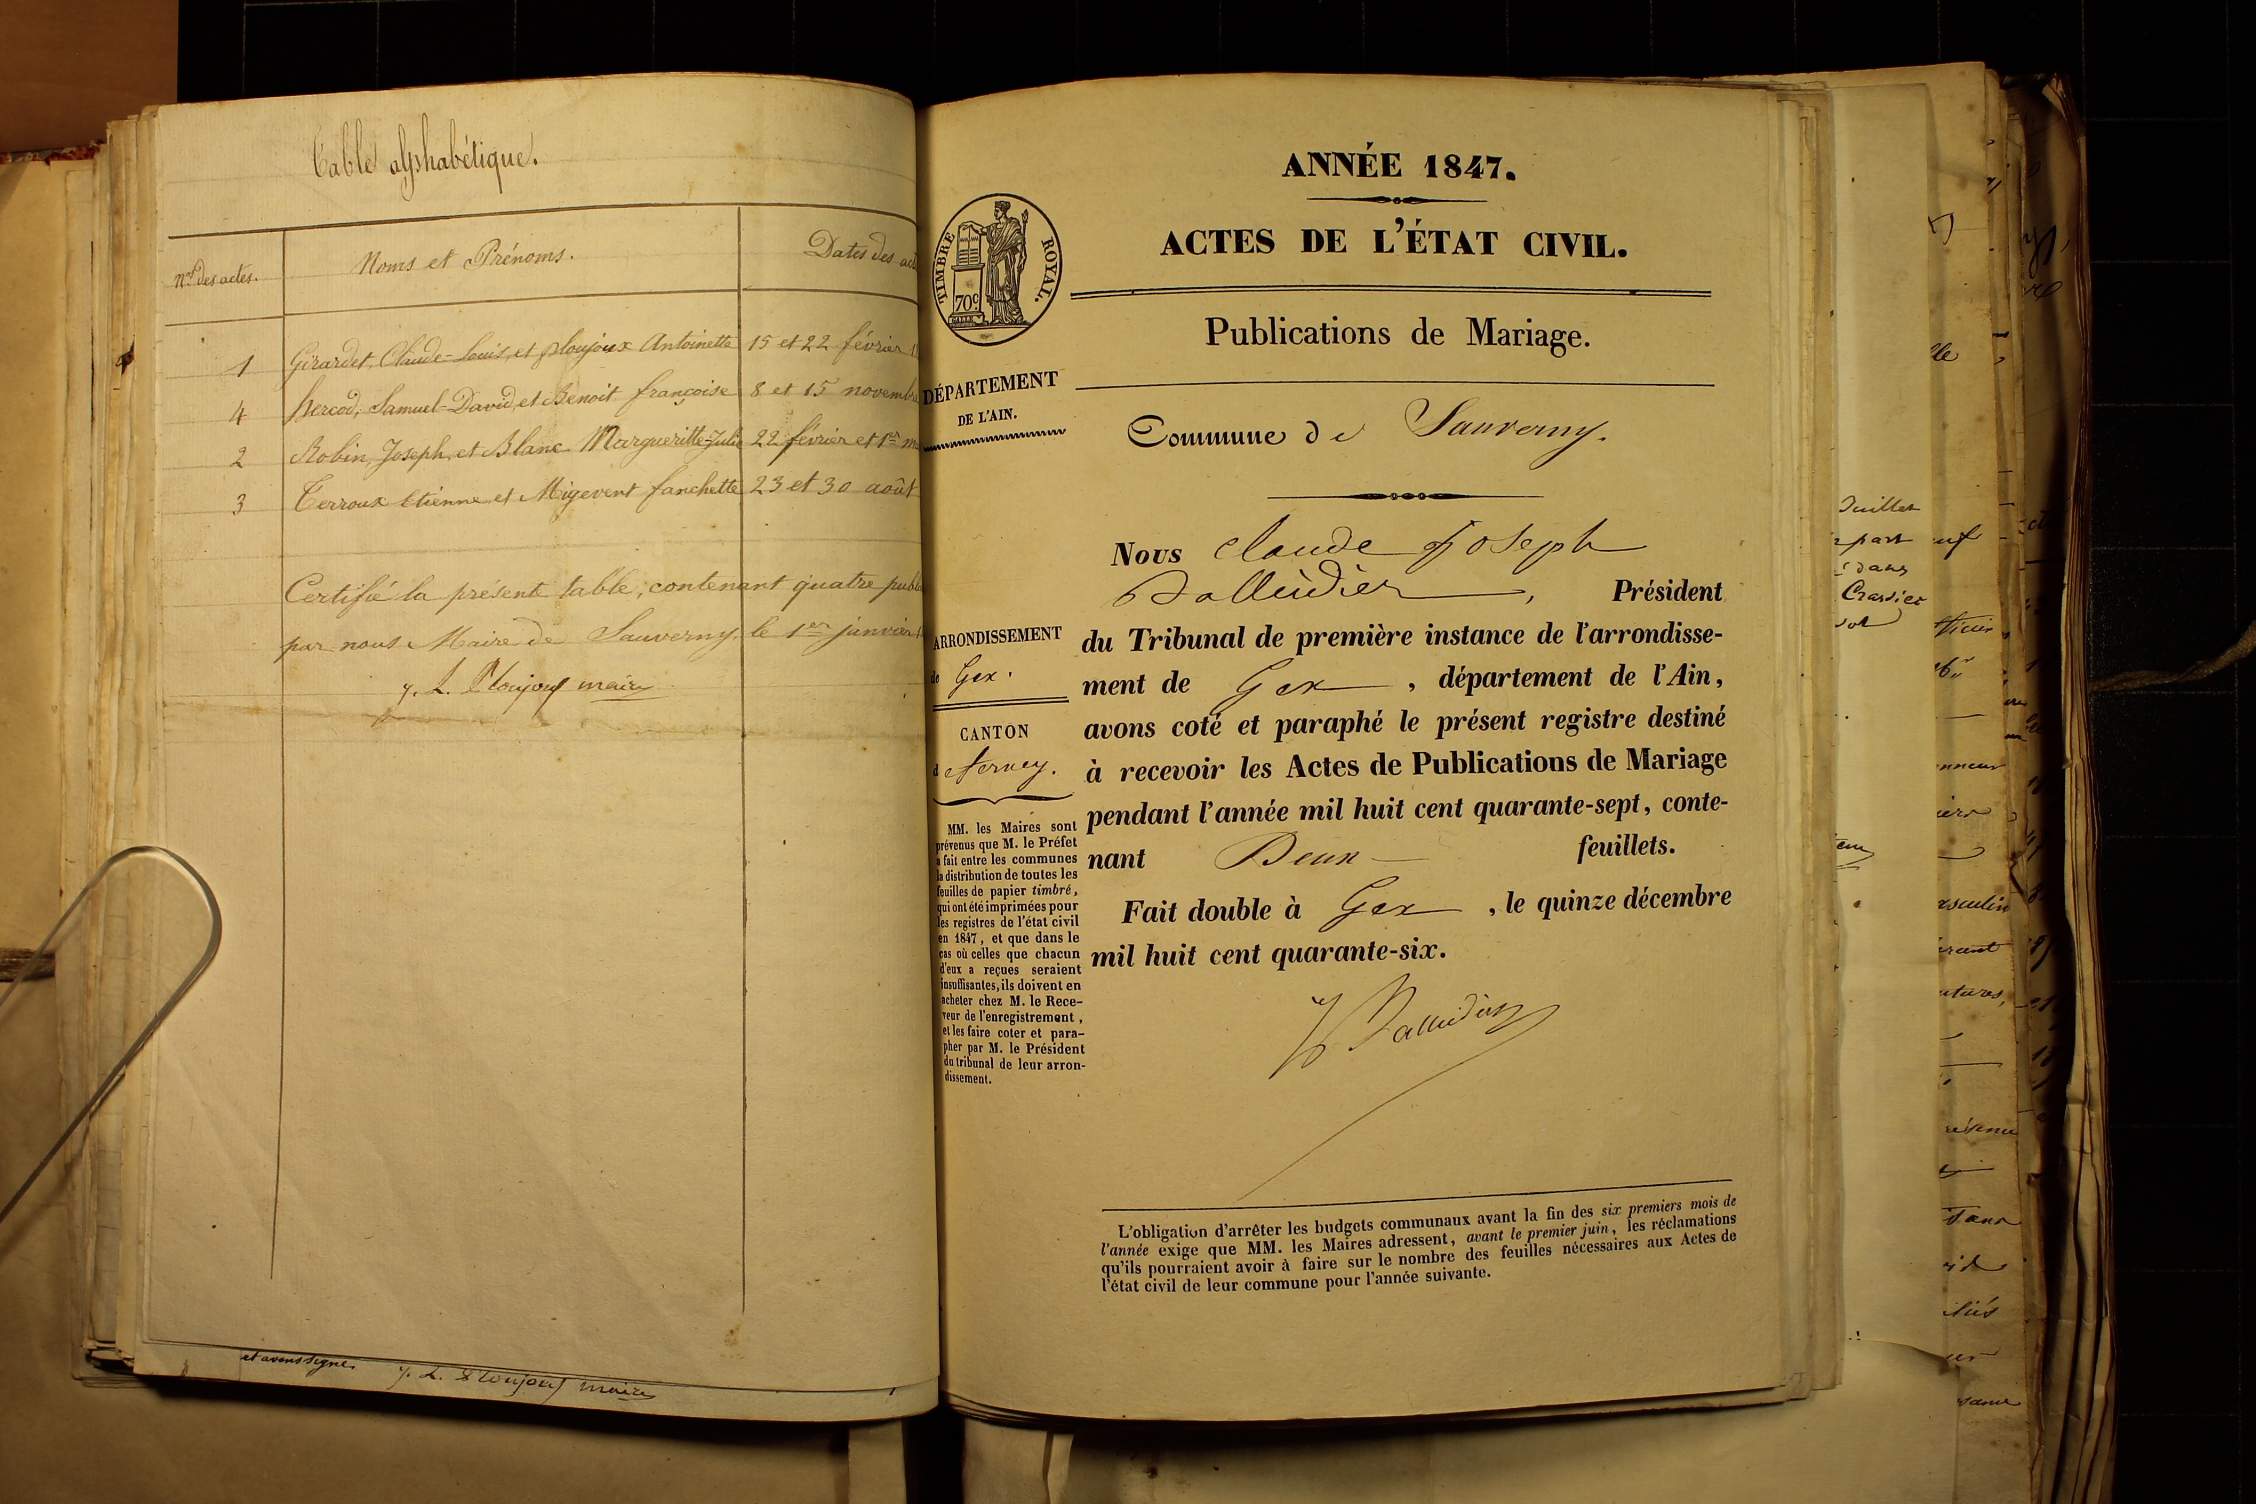 Table alphabétique.
Nos des actes.
Noms et Prénoms.
Dates des act
1 Girardet, Claude-Louis, et Ploujoux Antoinette 15 et 22 février
4 Hercod, Samuel-David, et Benoit françoise 8 et 15 novembre
2 Robin, Joseph, et Blanc Margueritte-Julie 22 février et 1er m
3 Terroux Etienne et Migevent fanchette 23 et 30 août
Certifié la présente table, contenant quatre publ
par nous Maire de Sauverny, le 1er janvier
J. L. Ploujoux maire
et avons signé. J. L. Ploujoux maire
ANNÉE 1847.
ACTES DE L'ÉTAT CIVIL.
TIMBRE ROYAL.
70c
Publications de Mariage.
DÉPARTEMENT
DE L'AIN.
Commune de Sauverny.
Nous Claude Joseph
Balleidier, Président
du Tribunal de première instance de l'arrondisse-
ment de Gex, département de l'Ain,
avons coté et paraphé le présent registre destiné
à recevoir les Actes de Publications de Mariage
pendant l'année mil huit cent quarante-sept, conte-
nant Deux feuillets.
Fait double à Gex, le quinze décembre
mil huit cent quarante-six.
Balleidier
ARRONDISSEMENT
de Gex.
CANTON
d Ferney.
MM. les Maires sont
prévenus que M. le Préfet
a fait entre les communes
la distribution de toutes les
feuilles de papier timbré,
qui ont été imprimées pour
les registres de l'état civil
en 1847, et que dans le
cas où celles que chacun
d'eux a reçues seraient
insuffisantes, ils doivent en
acheter chez M. le Rece-
veur de l'enregistrement,
et les faire coter et para-
pher par M. le Président
du tribunal de leur arron-
dissement.
L'obligation d'arrêter les budgets communaux avant la fin des six premiers mois de
l'année exige que MM. les Maires adressent, avant le premier juin, les réclamations
qu'ils pourraient avoir à faire sur le nombre des feuilles nécessaires aux Actes de
l'état civil de leur commune pour l'année suivante.
Juillet
part
dans
Crassier